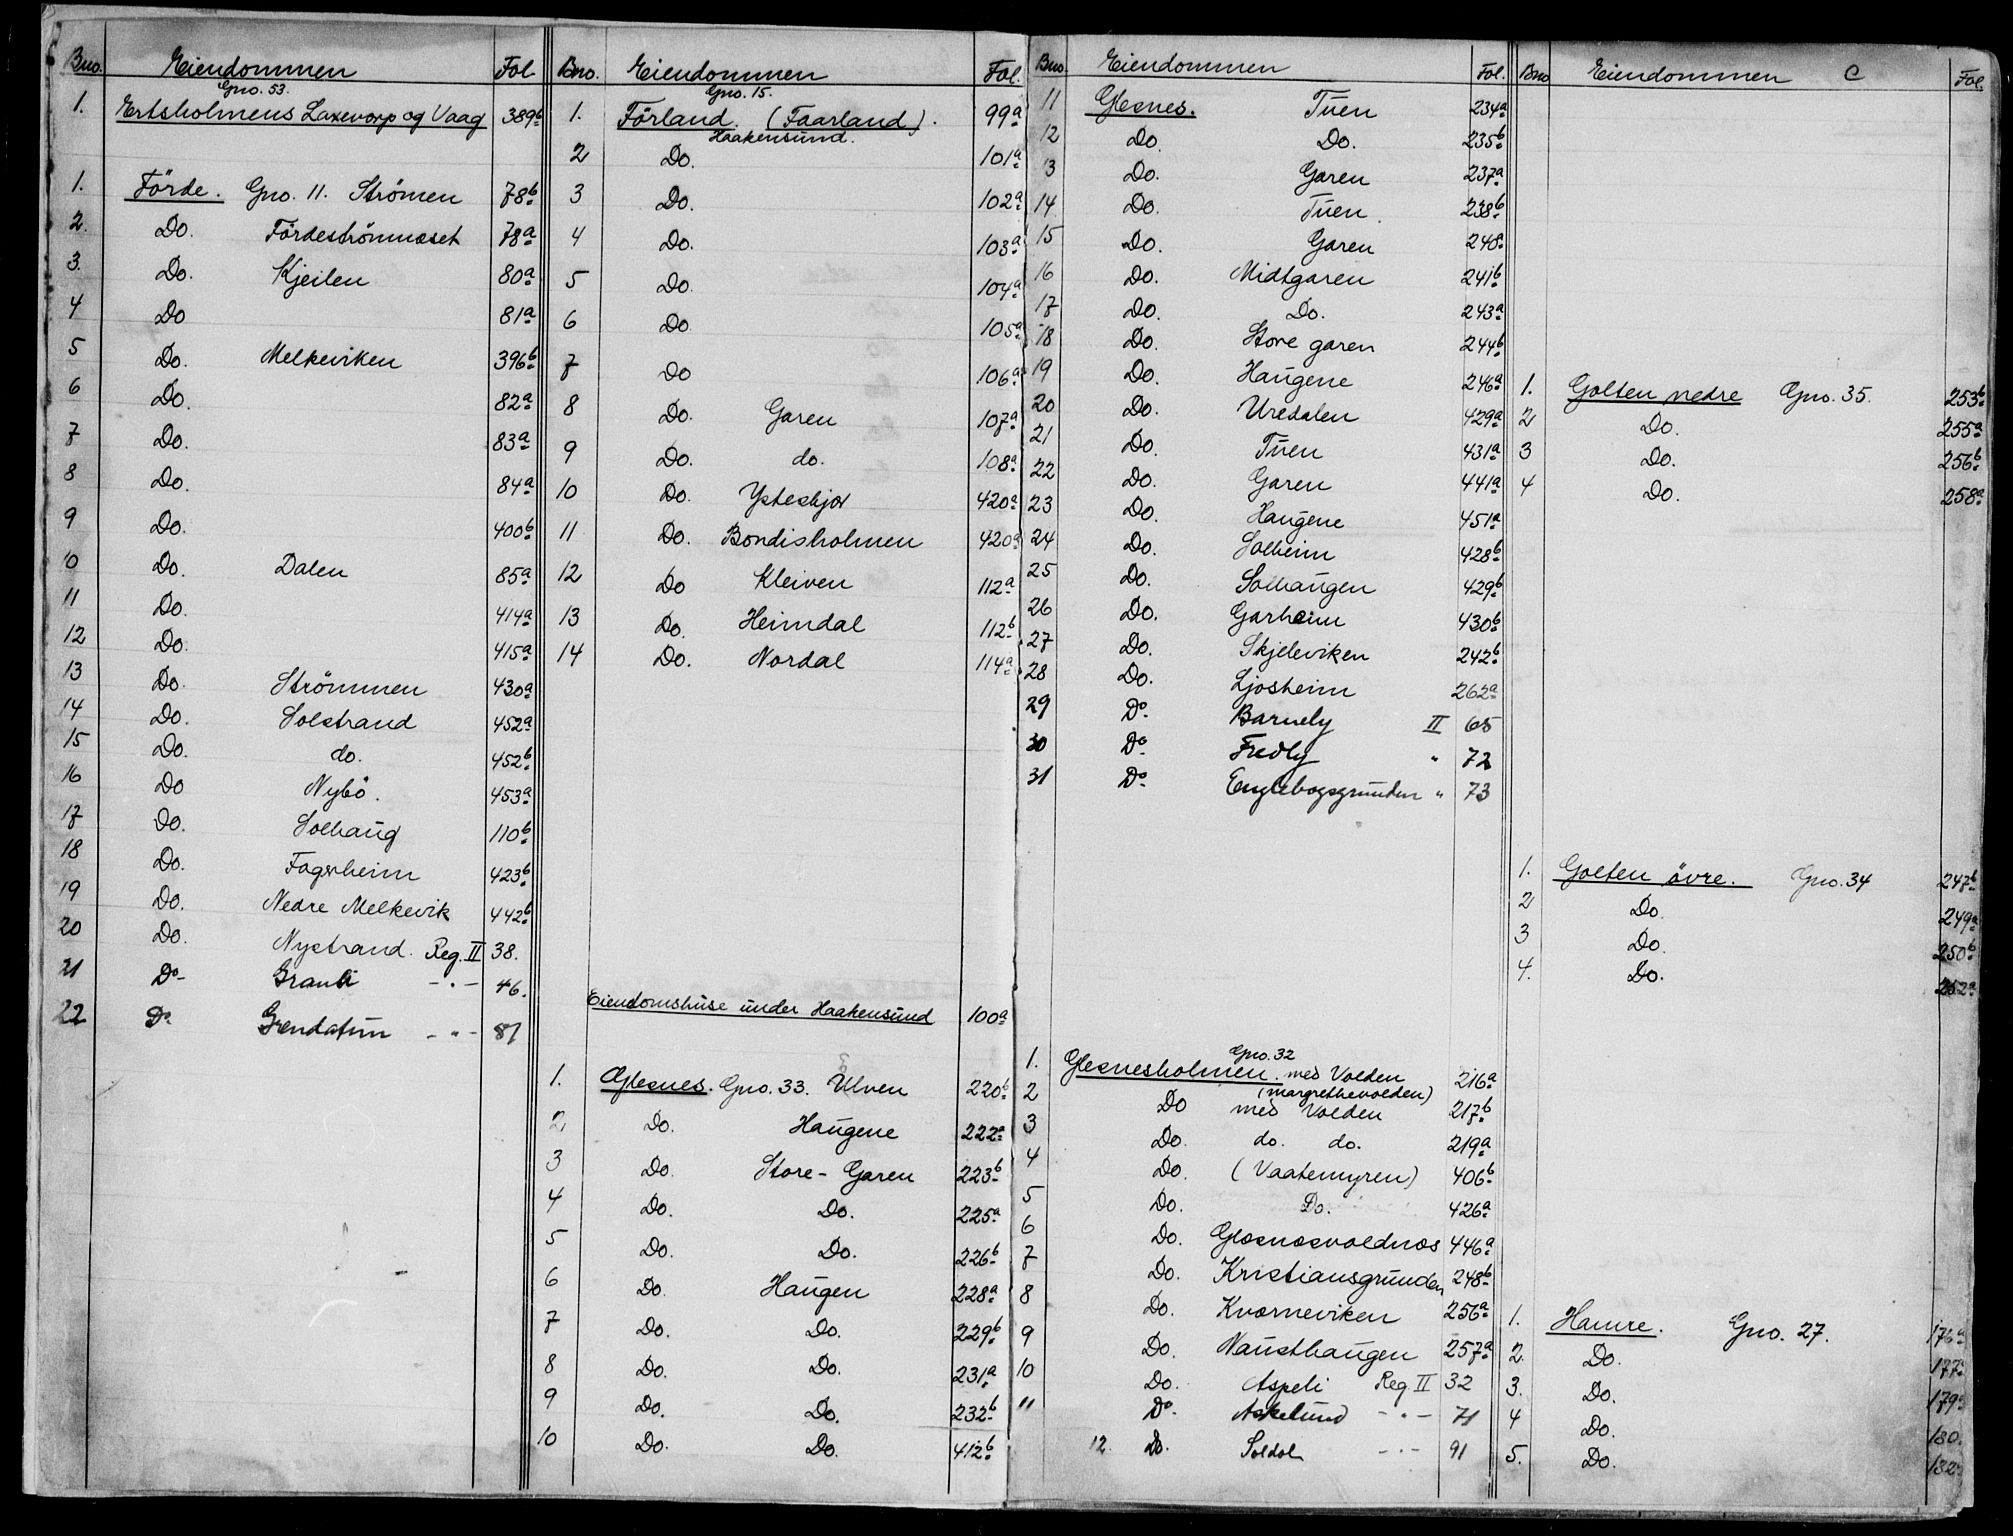 Bno. Eiendommen Fol
Gno. 53.
1. Ertsholmens Laxevarp og Vaag 389b
1. Förde. Gno. 11. Strömen 78b
2. Do. Fördeströmnæset 78a
3. Do. Kjeilen 80a
4 Do 81a
5 Do. Melkeviken 396b
6 Do. 82a
7 Do. 83a
8 Do. 84a
9 Do. 400b
10 Do. Dalen 85a
11 Do. 414a
12 Do. 415a
13 Do. Strömmen 430a
14 Do. Solstrand 452a
15 Do. do. 452b
16 Do Nybö. 453a
17 Do. Solhaug 110b
18 Do. Fagerheim 423b
19 Do. Nedre Melkevik 442b
20 Do. Nystrand. Reg. II 38.
21 Do Granli -"- 46.
22 Do Grendatun -"- 81
Bno. Eiendommen Fol.
Gno. 15.
1. Förland. (Faarland). 99a
Haakensund.
2 Do. 101a
3 Do. 102a
4 Do. 103a
5 Do. 104a
6 Do. 105a
7 Do 106a
8 Do. Garen 107a
9 Do. do. 108a
10 Do. Ysteskjær 420a
11 Do. Bondisholmen 420a
12 Do Kleiven 112a
13 Do. Heimdal 112b
14 Do. Nordal 114a
Eiendomshuse under Haakensund 100a
1. Glesnes. Gno. 33. Ulven 220b
2 Do. Haugene 222a
3 Do. Store-Garen 223b
4 Do. Do. 225a
5 Do. Do. 226b
6 Do. Haugen 228a
7 Do. Do. 229b
8 Do. Do. 231a
9 Do. Do. 232b
10 Do. Do. 412b
Bno Eiendommen Fol.
11 Glesnes. Tuen 234a
12 Do. Do. 235b
13 Do. Garen 237a
14 Do. Tuen. 238b
15 Do. Garen 248
16 Do. Midtgaren 241b
17 Do. Do. 243a
18 Do. Store garen 244b
19 Do. Haugene 246a
20 Do. Uredalen 429a
21 Do. Tuen 431a
22 Do. Garen 441a
23 Do. Haugene 451a
24 Do. Solheim 428b
25 Do. Solhaugen 429b
26 Do. Garheim 430b
27 Do. Skjeleviken 242b
28 Do. Ljosheim 262a
29 Do Barnely II 65
30 Do Fredly " 72
31 Do Englebogsgrunden " 73
Gno. 32
1. Glesnesholmen. med Volden 216a
(Margrethevolden)
2 Do med Volden 217b
3 Do. do. do. 219a
4 Do. (Vaatemyren) 406b
5 Do. Do. 426a
6 Do. Glesnesvoldnes 446a
7 Do. Kristiansgrunden 248b
8 Do. Kværneviken 256a
9 Do. Nausthaugen 257a
10 Do. Aspeli Reg. II 32
11 Do. Askelund -"- 71
12. Do. Soldal -"- 91
Bno Eiendommen C Fol.
1. Golten nedre Gno. 35. 253b
2 Do. 255a
3 Do. 256b
4 Do. 258a
1. Golten övre. Gno. 34 247b
2 Do. 249a
3 Do. 250b
4. Do. 252a
1. Hamre. Gno. 27. 176a
2. Do. 177a
3. Do. 179a
4 Do. 180.
5. Do. 182